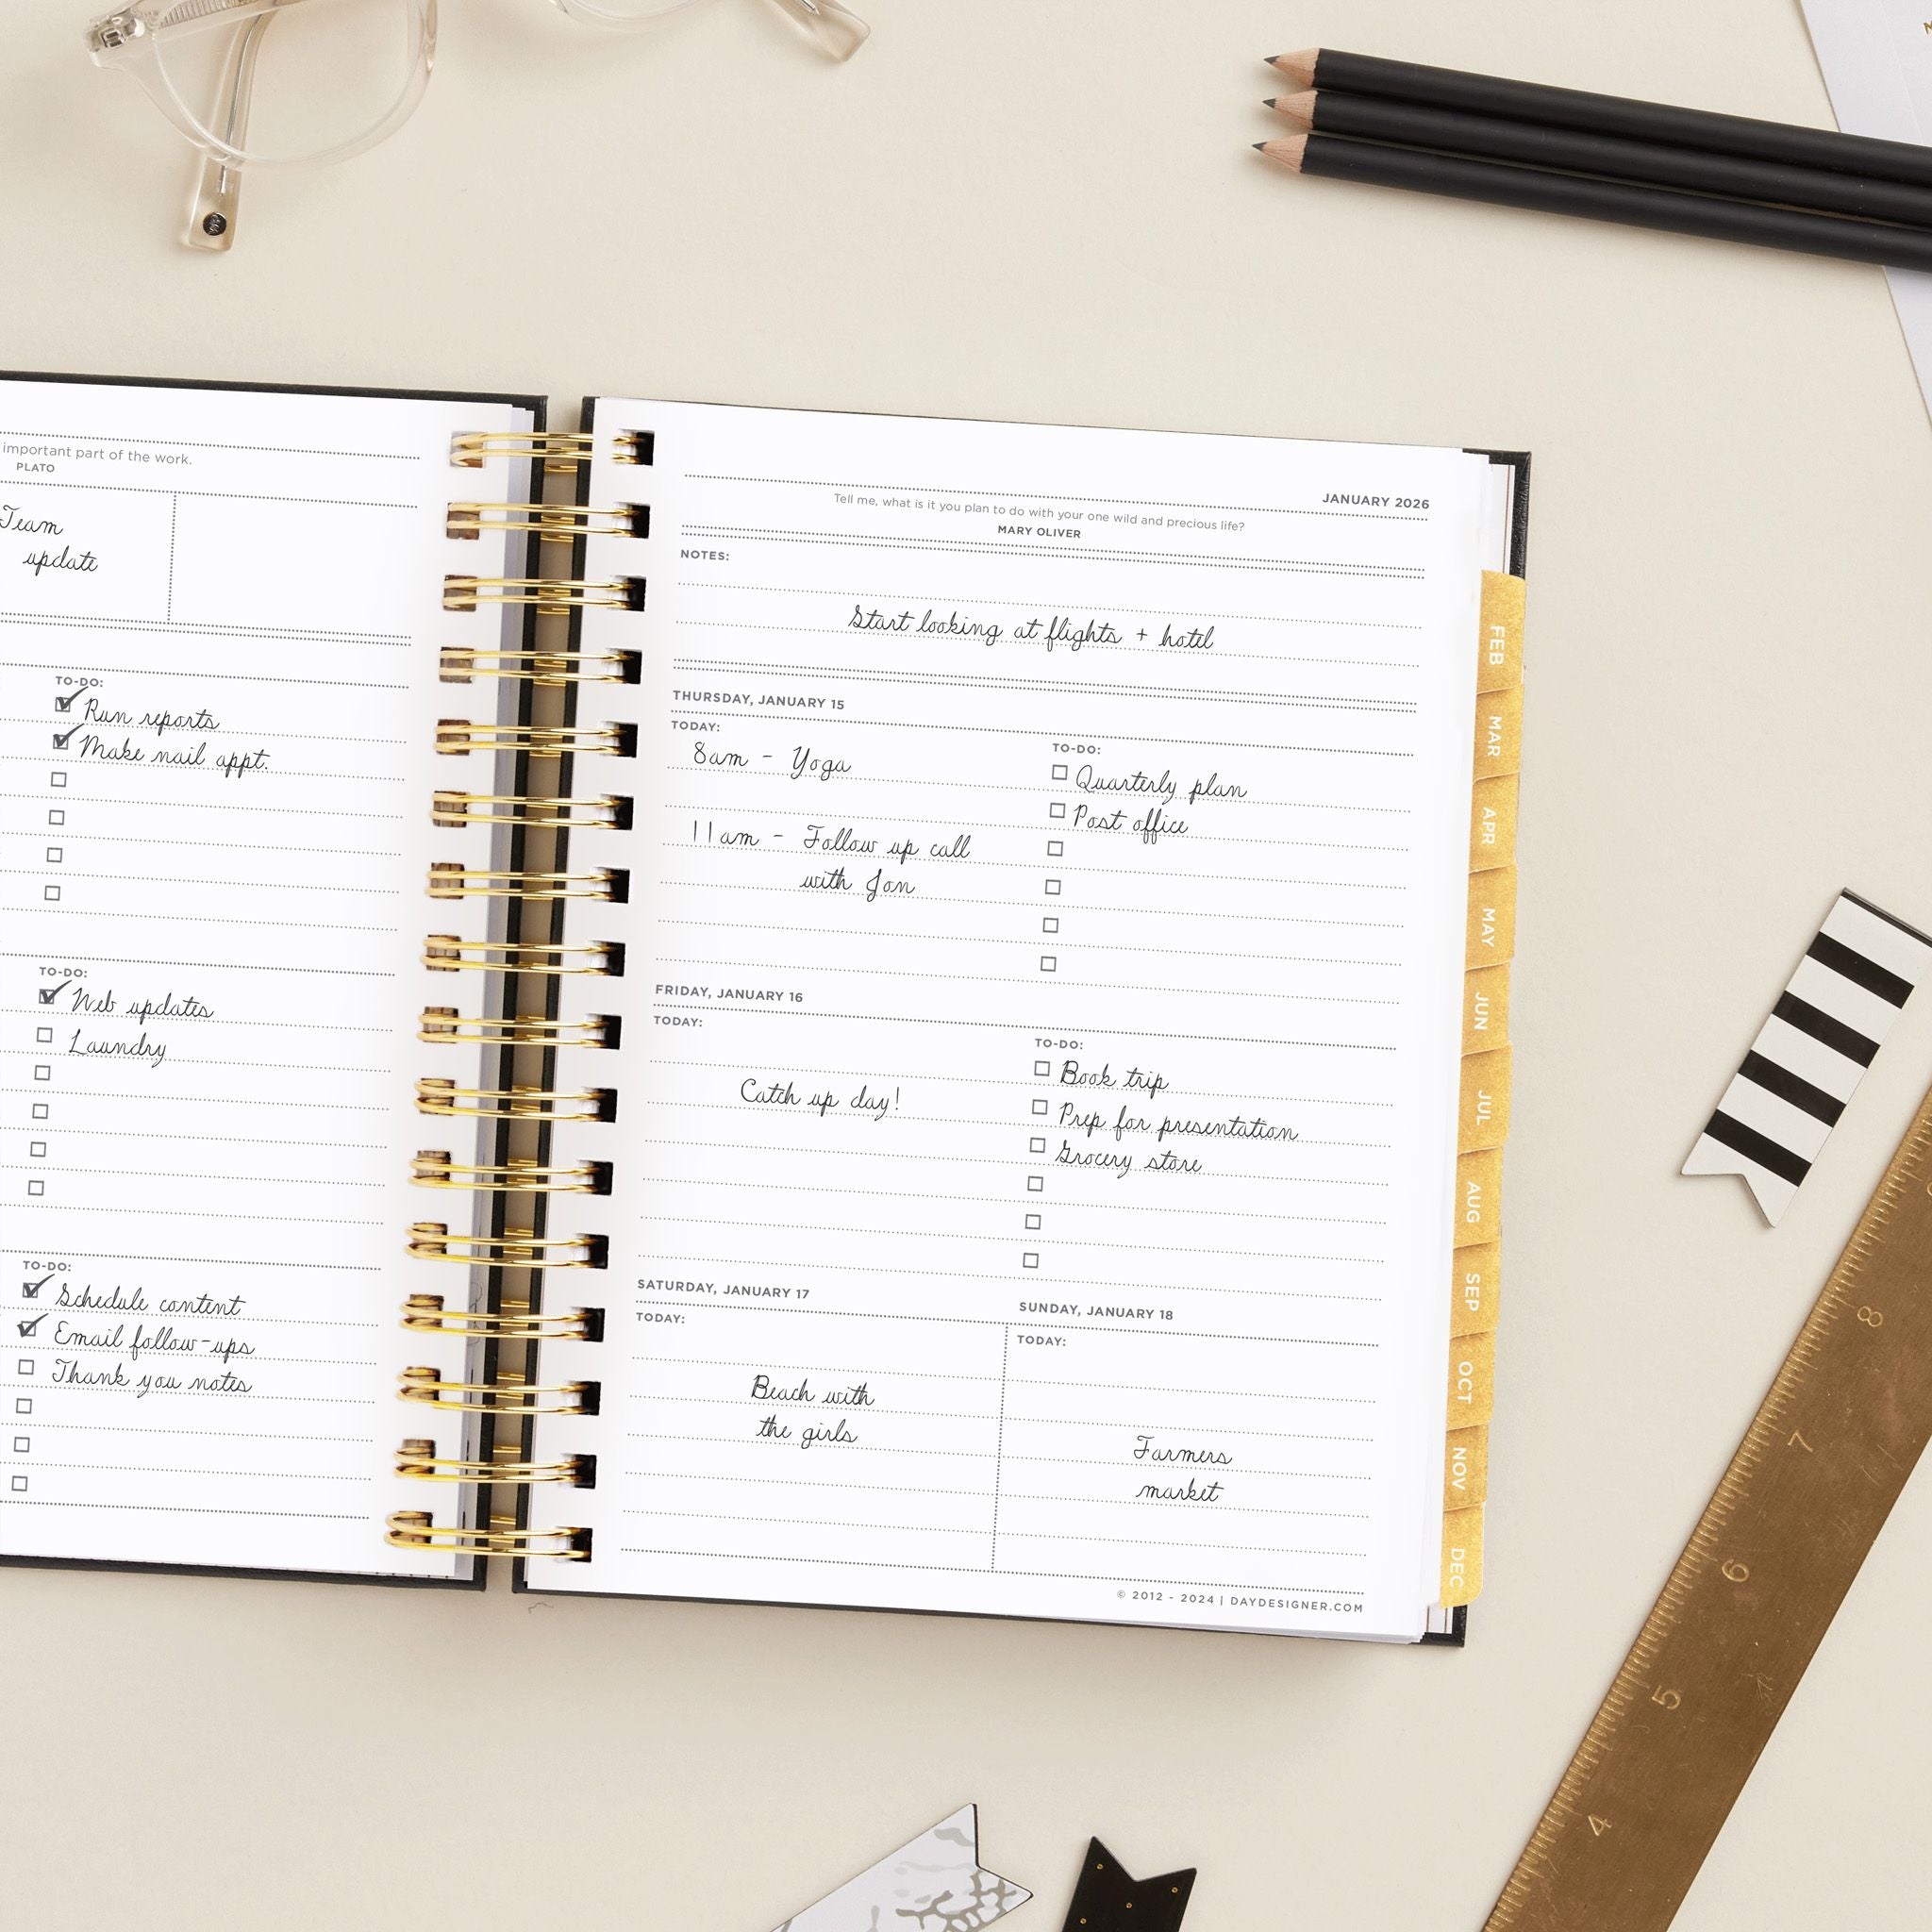 important part of the work.
PLATO
Team
update
TO-DO:
Run reports
Make nail appt.
TO-DO:
Web updates
Laundry
TO-DO:
Schedule content
Email follow-ups
Thank you notes
JANUARY 2026
Tell me, what is it you plan to do with your one wild and precious life?
MARY OLIVER
NOTES:
Start looking at flights + hotel
THURSDAY, JANUARY 15
TODAY:
8am - Yoga
11am - Follow up call
with Jon
TO-DO:
Quarterly plan
Post office
FRIDAY, JANUARY 16
TODAY:
Catch up day!
TO-DO:
Book trip
Prep for presentation
Grocery store
SATURDAY, JANUARY 17
TODAY:
Beach with
the girls
SUNDAY, JANUARY 18
TODAY:
Farmers
market
© 2012 - 2024 | DAYDESIGNER.COM
FEB
MAR
APR
MAY
JUN
JUL
AUG
SEP
OCT
NOV
DEC
8
7
6
5
4